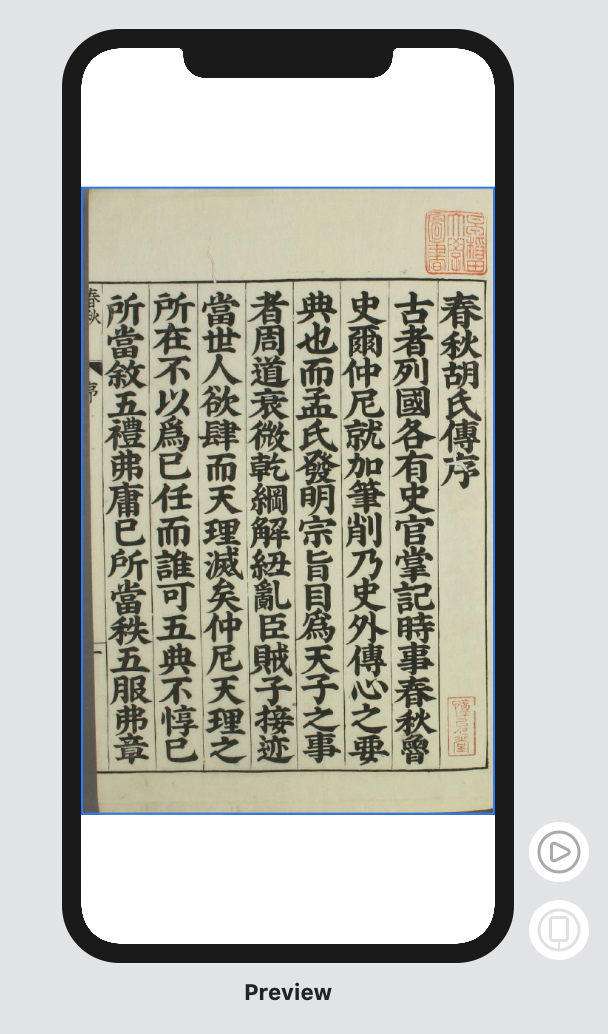 春秋胡氏傳序
古者列國各有史官掌記時事春秋魯
史爾仲尼就加筆削乃史外傳心之要
典也而孟氏發明宗旨目爲天子之事
者周道衰微乾綱解紐亂臣賊子接迹
當世人欲肆而天理滅矣仲尼天理之
所在不以爲已任而誰可五典不惇已
所當敘五禮弗庸已所當秩五服弗章
春秋
序
一
Preview